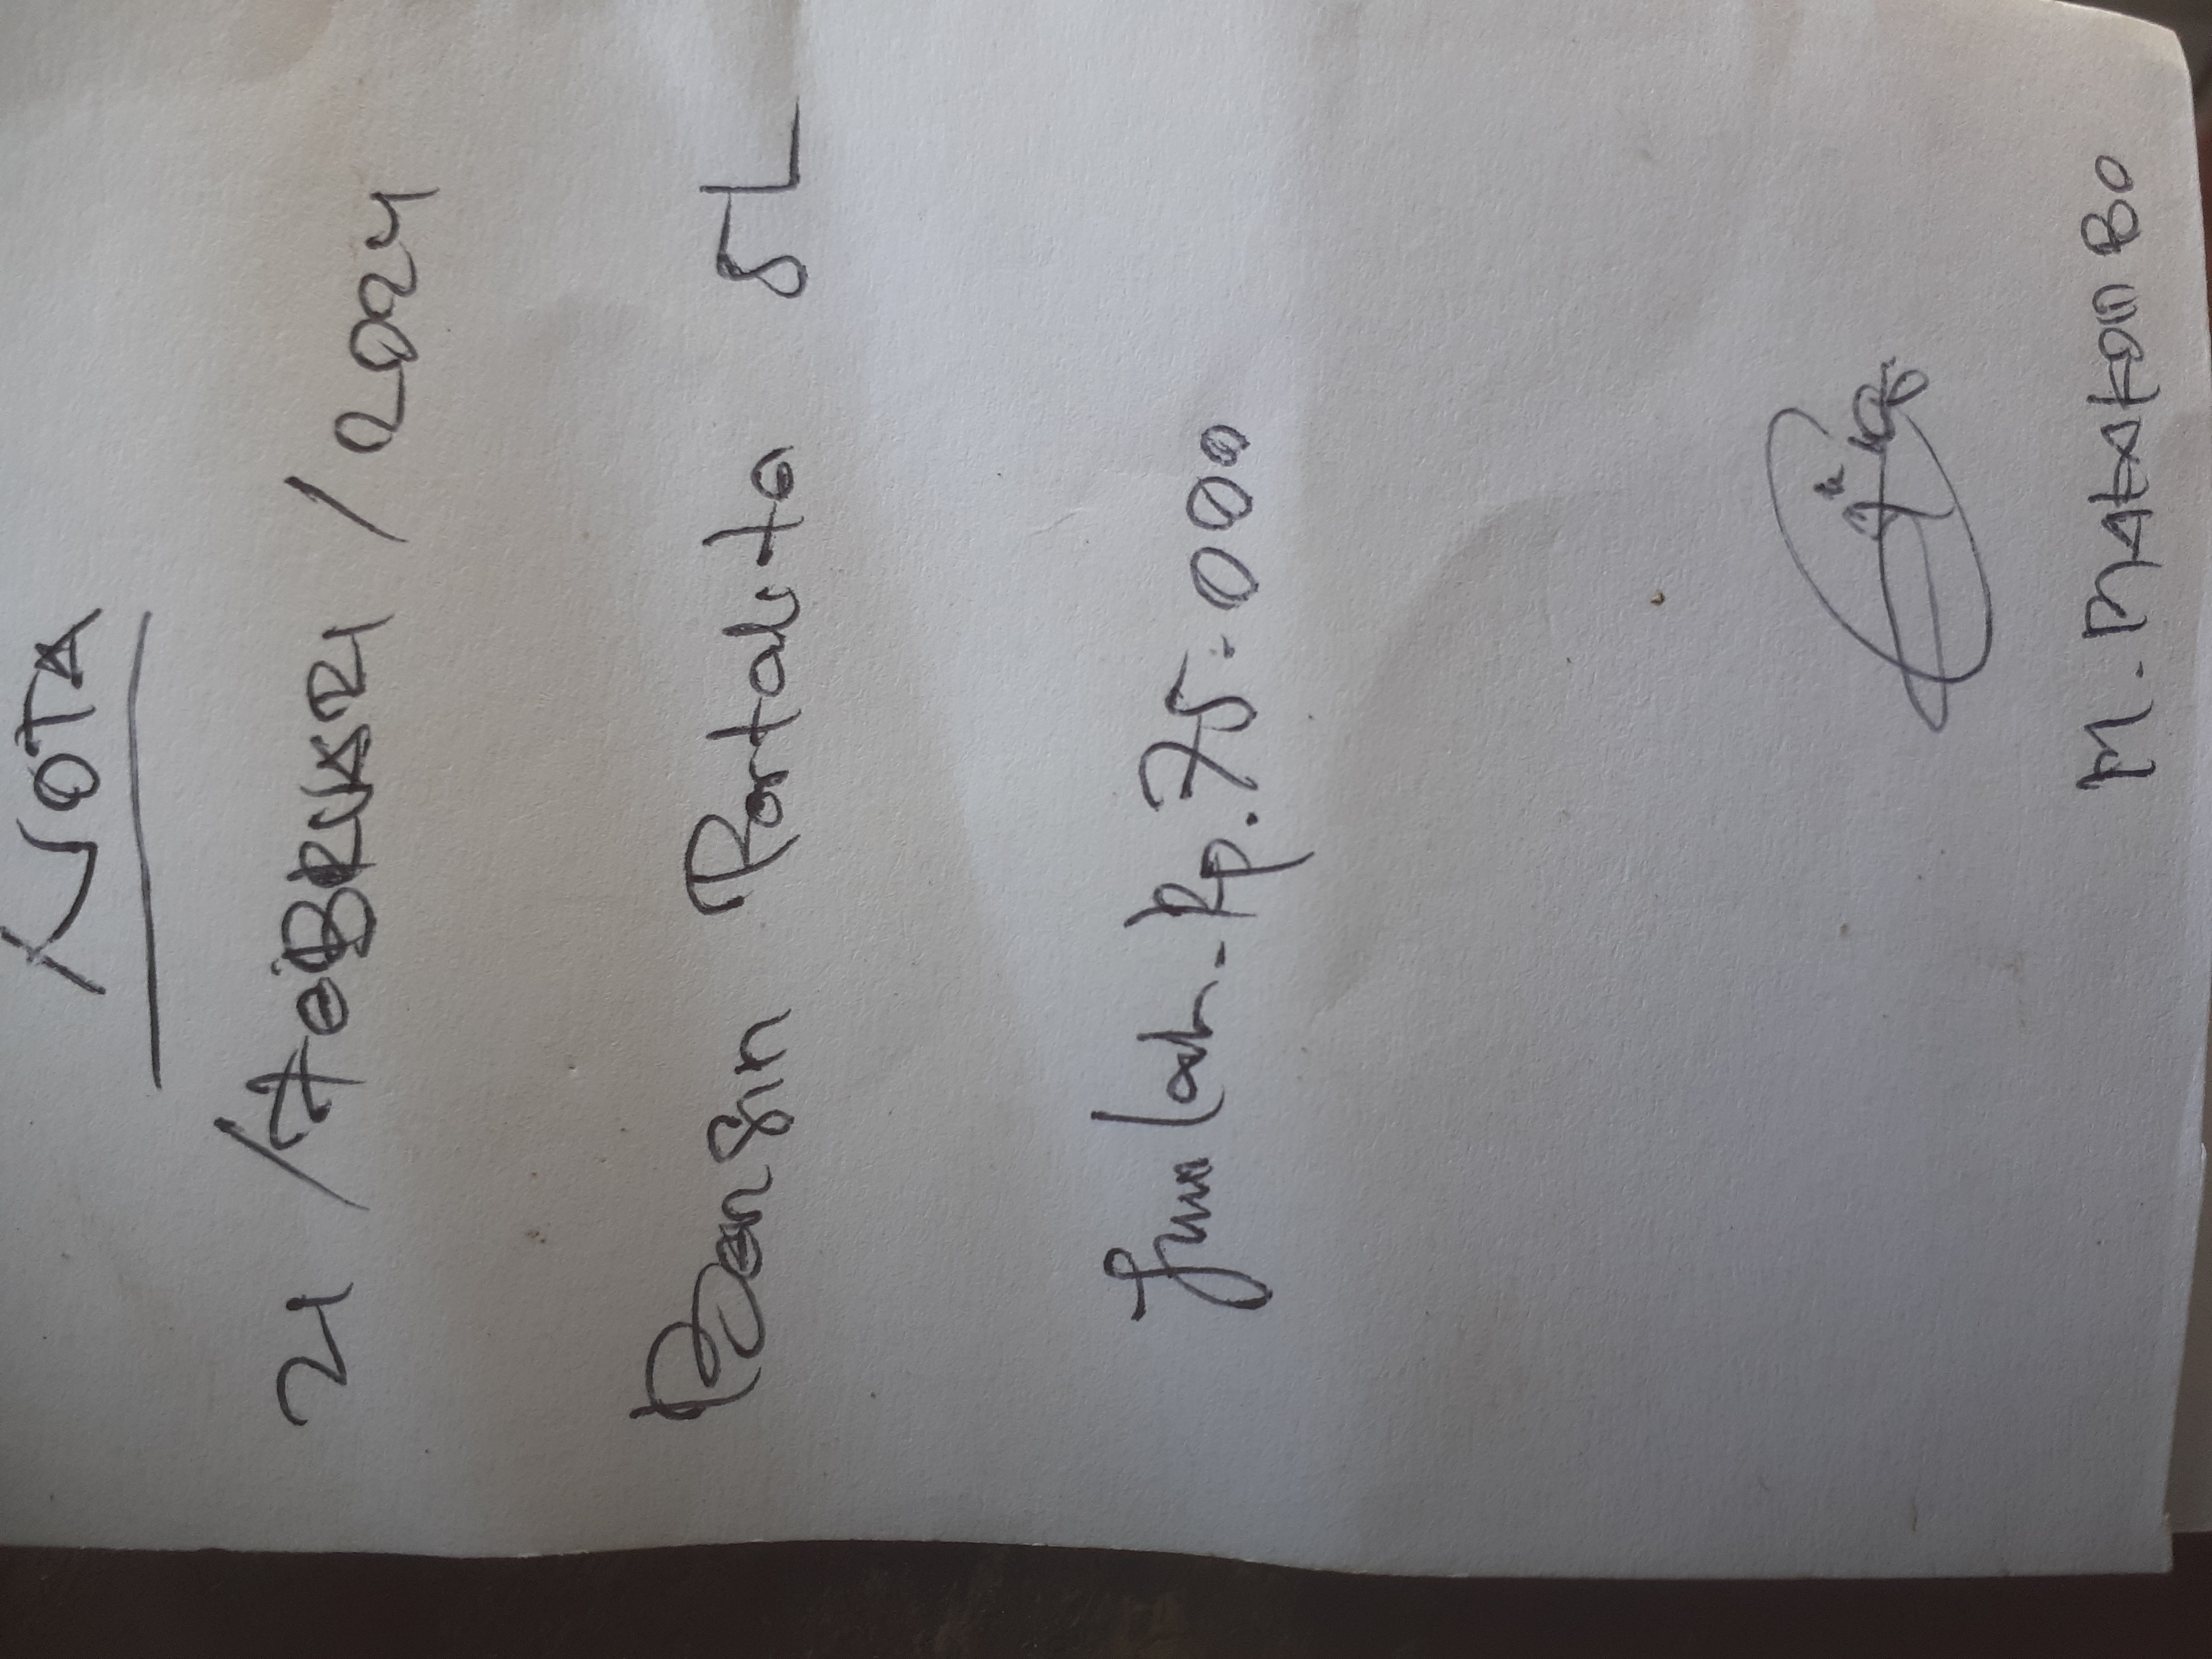 NOTA
21 / FEBRUARI / 2024
Bensin Portalite 5L
Jumlah - Rp. 75.000
M. MATAOM BO